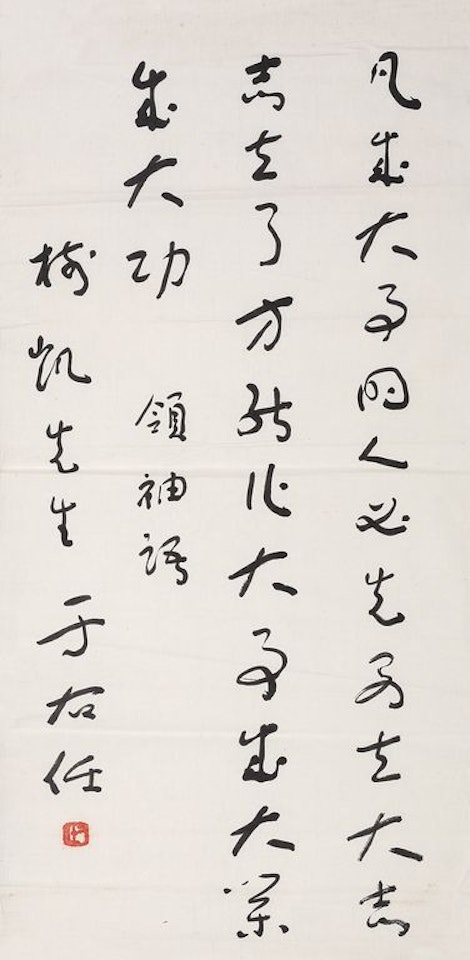 凡成大事的人必先要立大志
志立了方能作大事成大業
成大功 領袖語
樹凱先生 于右任